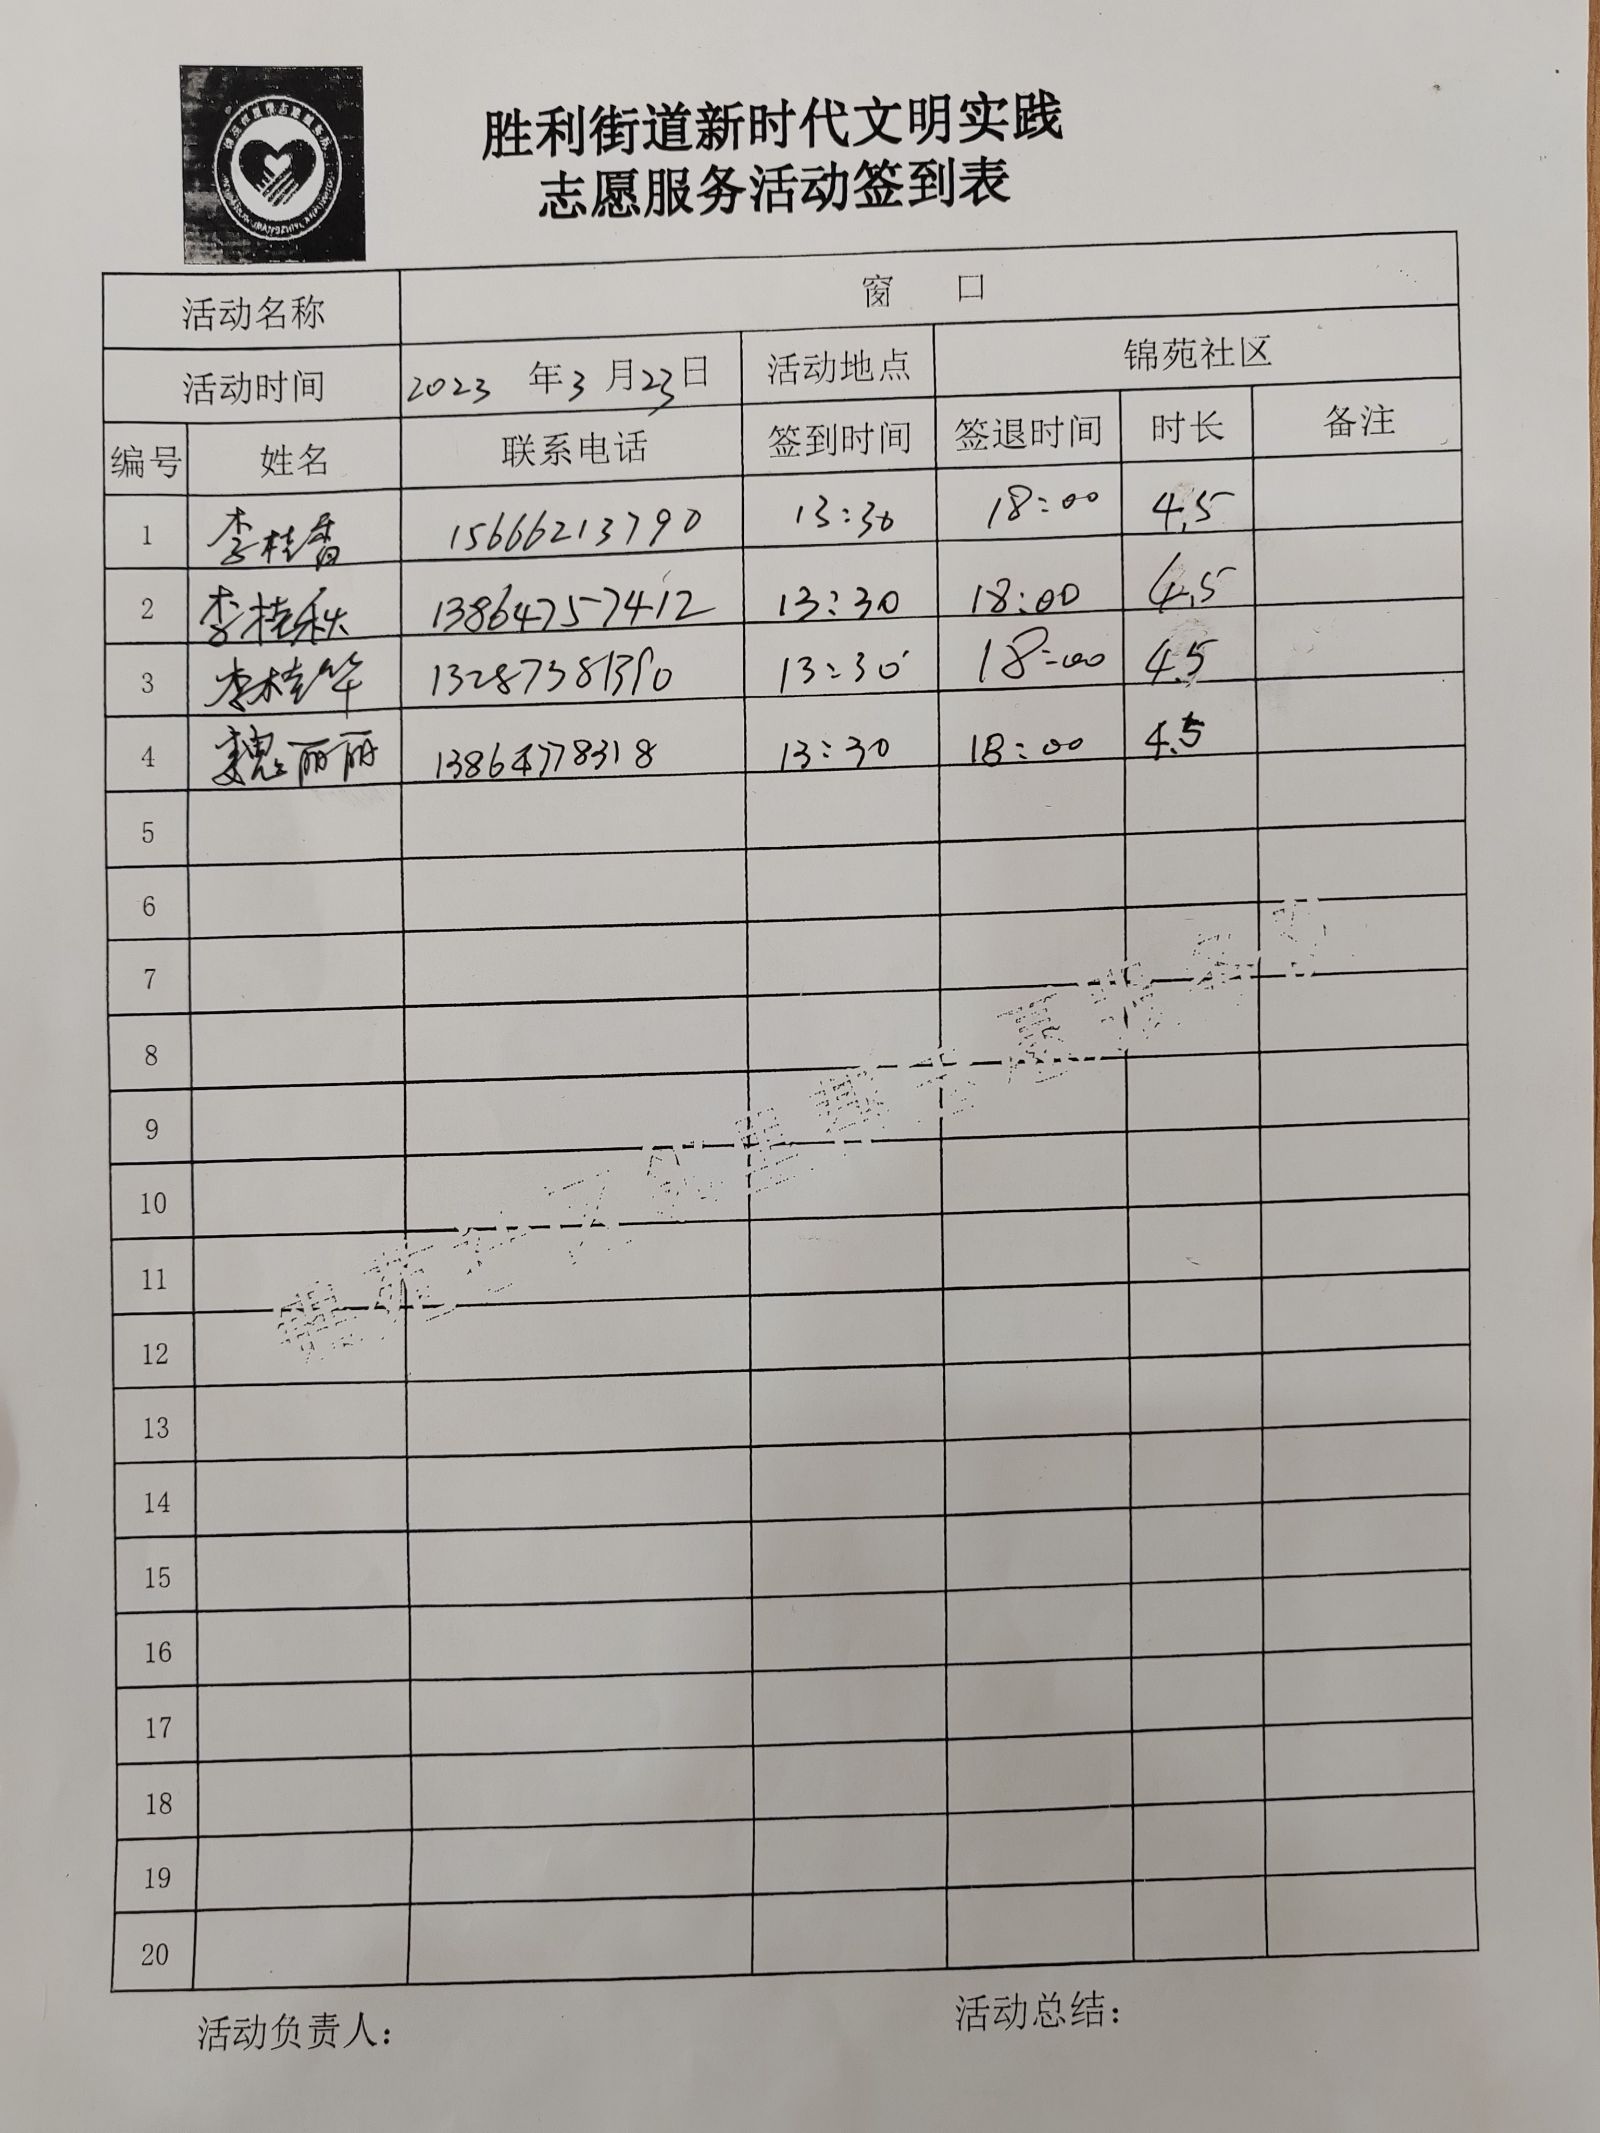 胜利街道新时代文明实践
志愿服务活动签到表
活动名称 窗 口
活动时间 2023 年 3 月 23 日 活动地点 锦苑社区
编号 姓名 联系电话 签到时间 签退时间 时长 备注
1 李桂香 15666213790 13:30 18:00 4.5
2 李桂秋 13864757412 13:30 18:00 4.5
3 李桂华 13287381390 13:30 18:00 4.5
4 魏丽丽 13864778318 13:30 18:00 4.5
5
6
7
8
9
10
11
12
13
14
15
16
17
18
19
20
活动负责人: 活动总结: